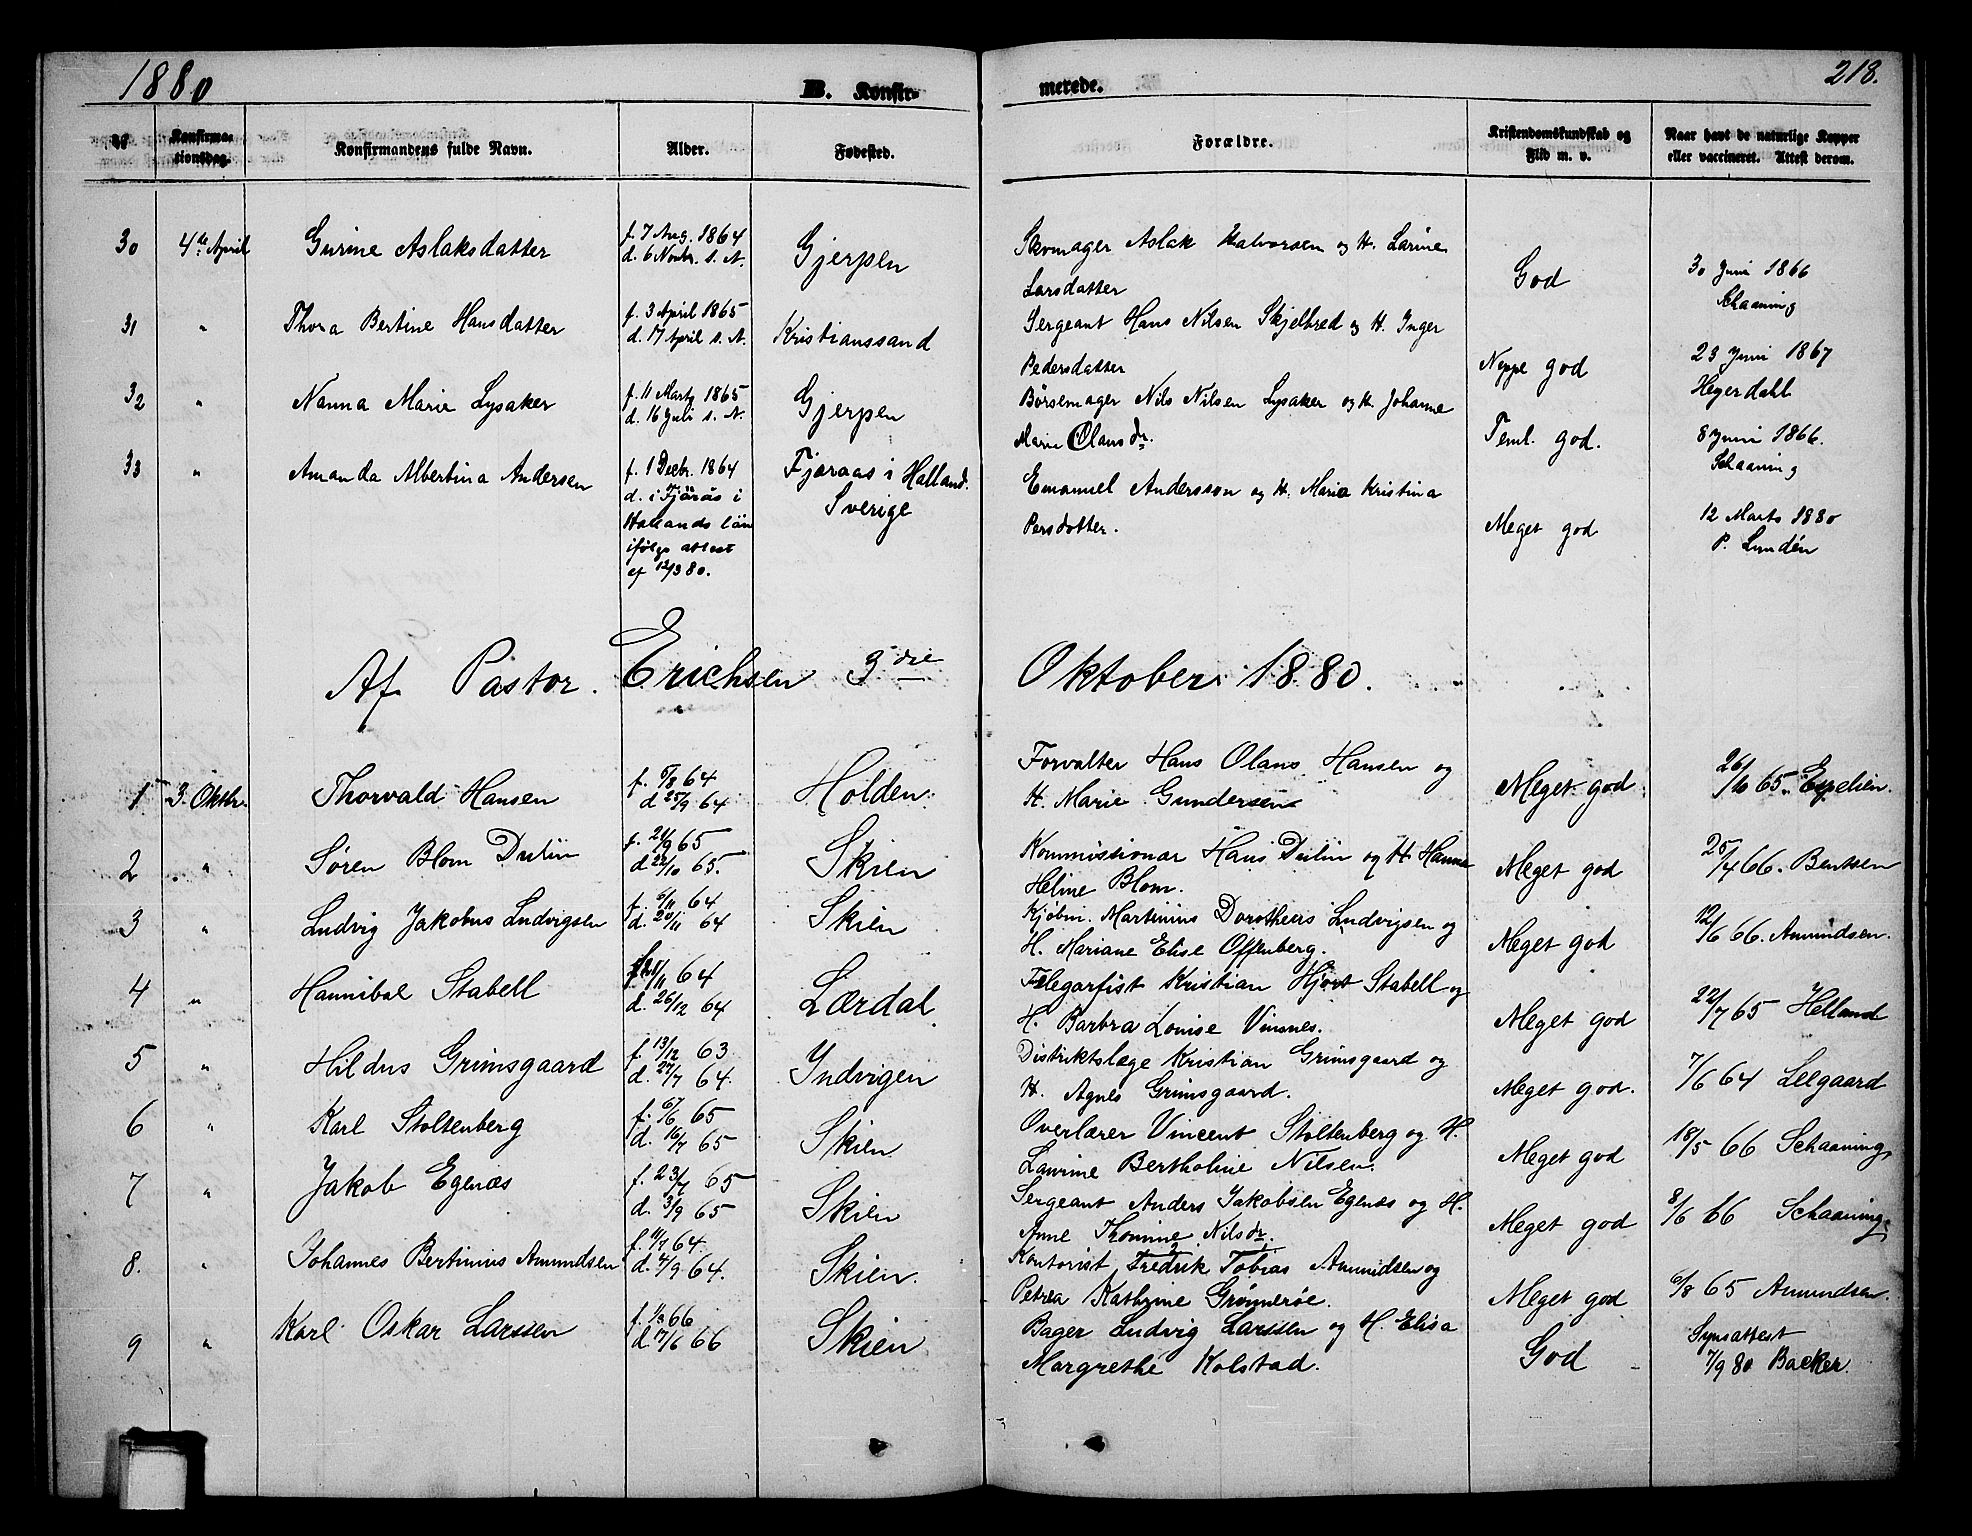 1880 B. Konfirmerede. 218.
№ Konfirmationsdag. Konfirmandens fulde Navn. Alder. Fødested. Forældre. Kristendomskundskab og Flid m. v. Naar havt de naturlige Kopper eller vaccineret. Attest derom.
30 4de April Gurine Aslaksdatter f. 7 Aug. 1864 Gjerpen Skomager Aslak Halvorsen og H. Larine God 30 Juni 1866
d. 6 Novbr. s. A. Larsdatter Schaaning
31 " Thora Bertine Hansdatter f. 3 April 1865 Kristianssand Sergeant Hans Nilsen Skjelbred og H. Inger Neppe god 23 Juni 1867
d. 17 April s. A. Pedersdatter Heyerdahl
32 " Nanna Marie Lysaker f. 11 Marts 1865 Gjerpen Børsemager Nils Nilsen Lysaker og H. Johanne Teml. god. 8 Juni 1866.
d. 16 Juli s. A. Marie Olansdr. Schaaning
33 " Amanda Albertina Andersen f. 1 Decbr. 1864 Fjæraas i Halland. Emanuel Andersson og H. Maria Kristina Meget god 12 Marts 1880
d. i Fjärås i Sverige Persdotter. P. Lundén
Hallands län
ifølge attest
af 12/3 80.
Af Pastor Erichsen 3die Oktober 1880.
1 3. Oktbr. Thorvald Hansen f. 5/8 64 Holden. Forvalter Hans Olaus Hansen og Meget god. 26/10 65.
d 25/9 64 H. Marie Gundersen
2 " Søren Blom Dulin f. 21/9 65 Skien Kommissionær Hans Dulin og H. Hanna Meget god 25/4 66. Bentsen
d 22/10 65. Heline Blom.
3 " Ludvig Jakobus Ludvigsen f. 6/11 64 Skien Kjøbm. Martinius Dorotheus Ludvigsen og Meget god 12/6 66. Amundsen.
d. 20/11 64 H. Mariane Elise Offenberg.
4 " Hannibal Stabell 64 Lærdal Telegrafist Kristian Hjort Stabell og Meget god 22/7 65 Helland
d. 26/12 64 H. Barbra Louise Vinsnes.
5 " Hildus Grimsgaard f. 13/12 63 Indvigen Distriktslæge Kristian Grimsgaard og Meget god. 7/6 64 Leegaard
d. 27/7 64. H. Agnes Grimsgaard.
6 " Karl Stoltenberg 65 Skien Overlærer Vincent Stoltenberg og H. Meget god 18/5 66 Schaaning
d. 16/7 65 Laurine Bertholine Nilsen.
7 " Jakob Egenæs 65 Skien Sergeant Anders Jakobsen Egenæs og H. Meget god 8/6 66 Schaaning
d. 3/9 65 Anne Thomine Nilsdr.
8. " Johannes Bertinius Amundsen f. 11/7 64. Skien. Kontorist Fredrik Tobias Amundsen og Meget god 6/8 65 Amundsen.
d. 4/9 64. Petrea Kathrine Grønnerøe.
9 " Karl Oskar Larssen 66 Skien Bager Ludvig Larssen og H. Elisa God Synsattest
d. 17/6 66 Margrethe Kolstad. 7/9 80 Backer.